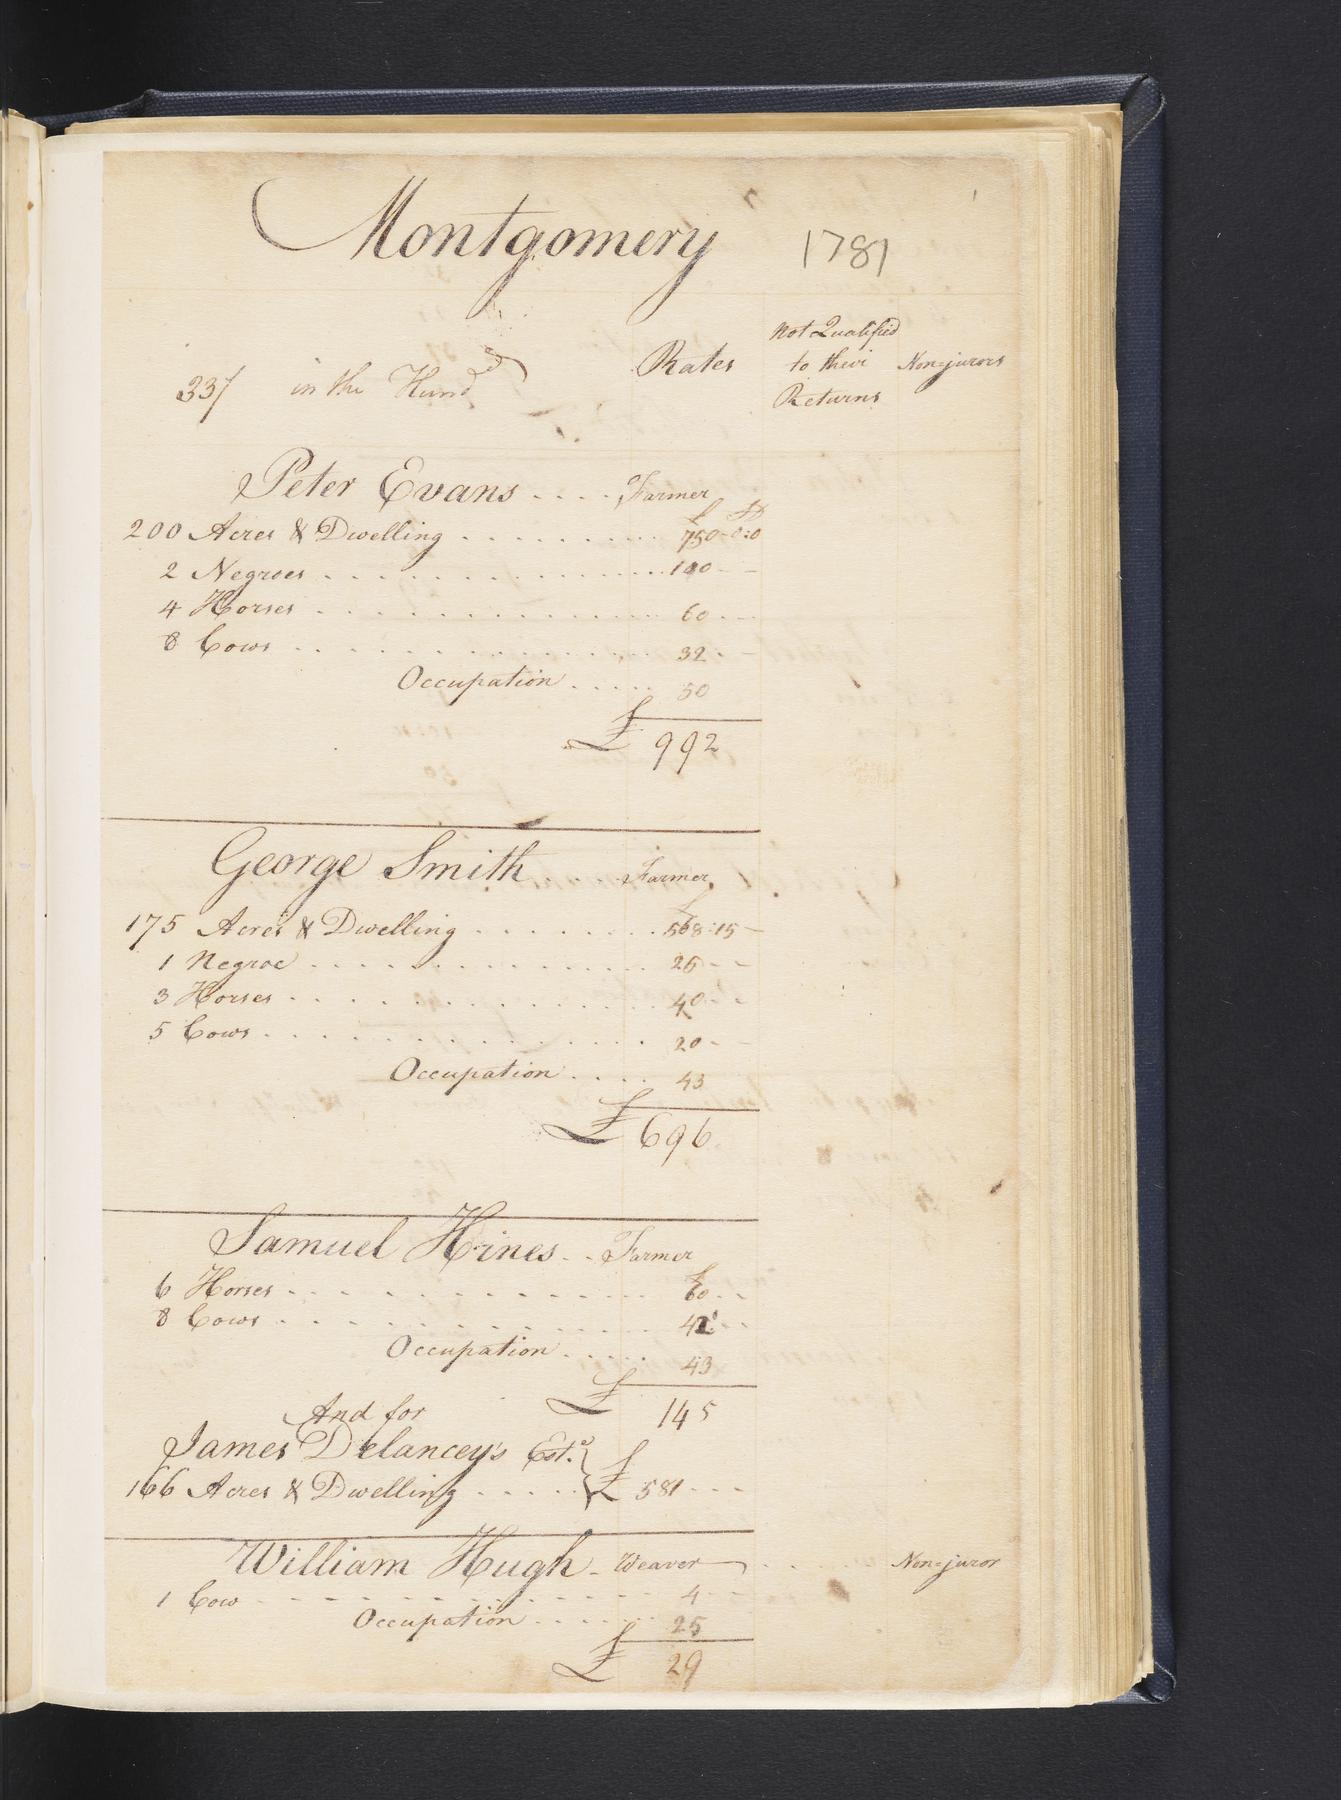 Montgomery 1781
33/ in the Hund.d
Rates
Not Qualified to their Returns
Non-jurors
Peter Evans .... Farmer
200 Acres & Dwelling ......... 750-0:0
2 Negroes ......... 100 - -
4 Horses ......... 60 - -
8 Cows ......... 32 -
Occupation ..... 50
£ 992
George Smith ... Farmer
175 Acres & Dwelling ......... 568:15 -
1 Negroe ......... 25 - -
3 Horses ......... 40 - -
5 Cows ......... 20 - -
Occupation .... 43
£ 696
Samuel Hines .. Farmer
6 Horses ......... 60 - -
8 Cows ......... 42 - -
Occupation ..... 43
£ 145
And for
James Delancey's Est.e
166 Acres & Dwelling ..... £ 581 - - -
William Hugh - Weaver ..... Non-juror
1 Cow ......... 4 - -
Occupation ..... 25
£ 29